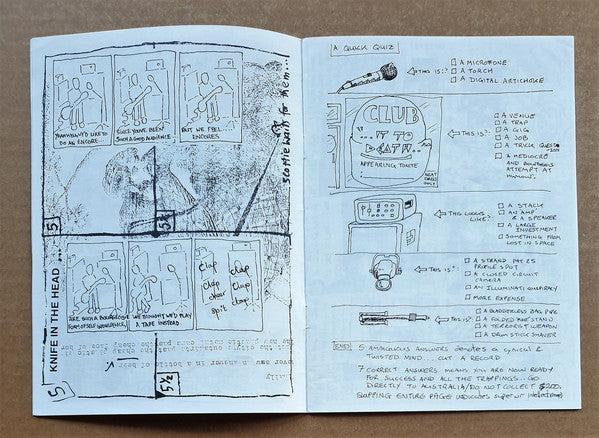 YEAH WE'D LIKE TO
DO AN ENCORE
SINCE YOU'VE BEEN
SUCH A GOOD AUDIENCE..
BUT WE FEEL
ENCORES
Scottie waits for them...
5
5¼
ARE SUCH A BOURGEOIS
FORM OF SELF INDULGENCE,
WE THOUGHT WE'D PLAY
A TAPE INSTEAD
clap
clap
clap
clap
clap
spit
KNIFE IN THE HEAD
5
5½
A QUICK QUIZ
THIS IS?:
A MICROFONE
A TORCH
A DIGITAL ARTICHOKE
CLUB
... IT TO
DEATH...
APPEARING TONITE
THIS IS?:
A VENUE
A TRAP
A GIG
A JOB
A TRICK QUESTION
A MEDIOCRE
AND
ATTEMPT AT
HUMOUR.
THIS LOOKS
LIKE?:
A STACK
AN AMP
& A SPEAKER
A LARGE
INVESTMENT
SOMETHING FROM
LOST IN SPACE
THIS IS?:
A STRAND PAT 23
PROFILE SPOT
A CLOSED CIRCUIT
CAMERA
AN ILLUMINATI CONSPIRACY
MORE EXPENSE
THIS IS?:
A BLADDERLESS BAG PIPE
A FOLDED MIKE STAND
A TERRORIST WEAPON
A DRUM STICK SHAVER
5 AMBIGUOUS ANSWERS DENOTES A CYNICAL &
TWISTED MIND... CUT A RECORD
7 CORRECT ANSWERS MEANS YOU ARE NOW READY
FOR SUCCESS AND ALL THE TRAPPINGS.. GO
DIRECTLY TO AUSTRALIA/DO NOT COLLECT $200.
SKIPPING ENTIRE PAGE INDICATES SUPERIOR INTELLIGENCE